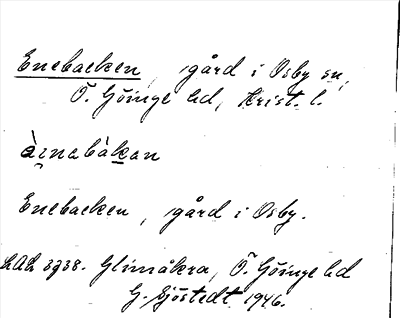 Enebacken, gård i Osby sn,
Ö. Göinge hd, Krist. l.
ènabàkan
Enebacken, gård i Osby.
LAL 3738. Glimåkra, Ö. Göinge hd
G. Sjöstedt 1946.